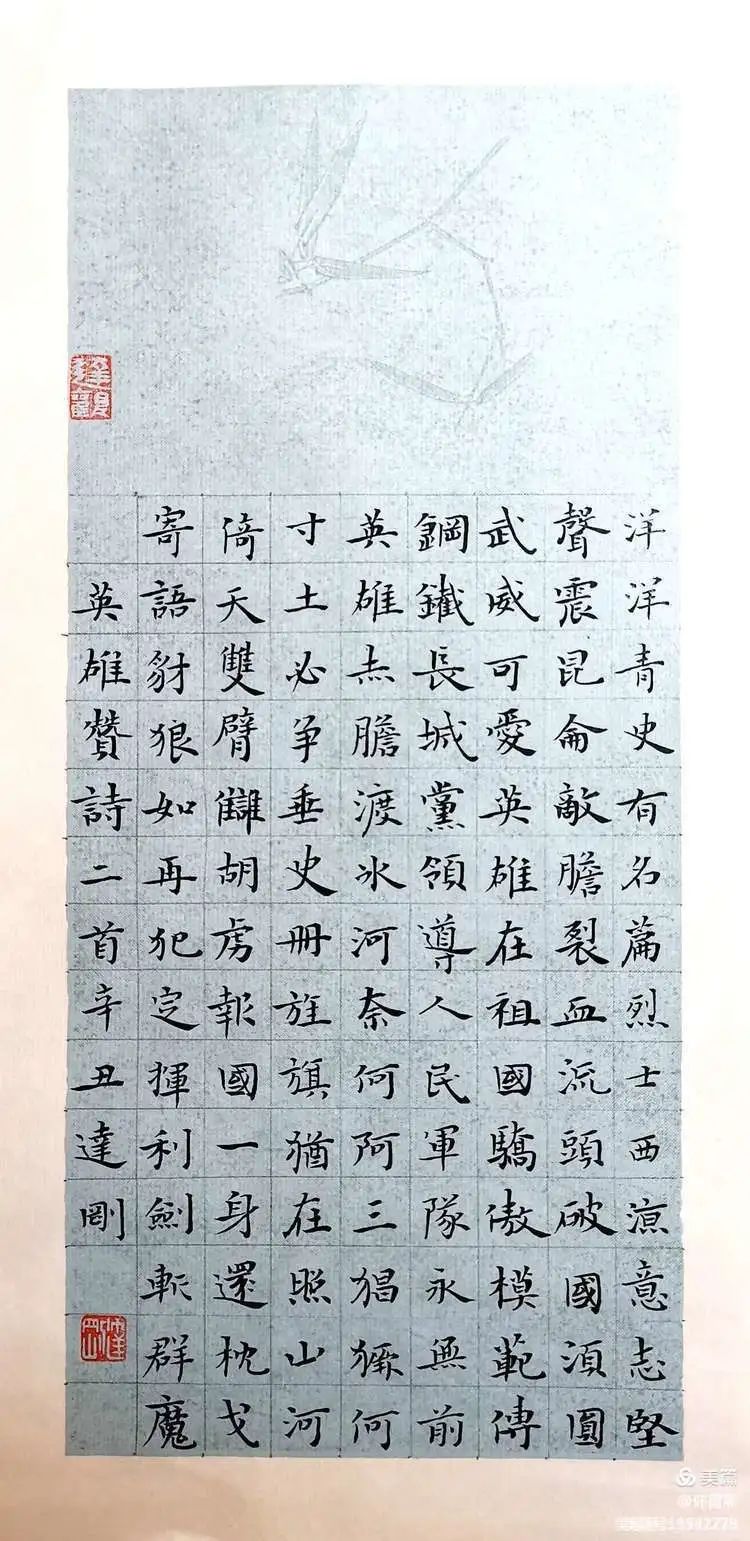 洋洋青史有名篇烈士西涼意志堅
聲震昆侖敵膽裂血流頭破國須圓
武威可愛英雄在祖國驕傲模範傳
鋼鐵長城黨領導人民軍隊永無前
英雄赤膽渡冰河奈何阿三猖獗何
寸土必爭垂史冊旌旗猶在照山河
倚天雙臂讎胡虜報國一身還枕戈
寄語豺狼如再犯定揮利劍斬群魔
英雄贊詩二首辛丑達剛
美篇